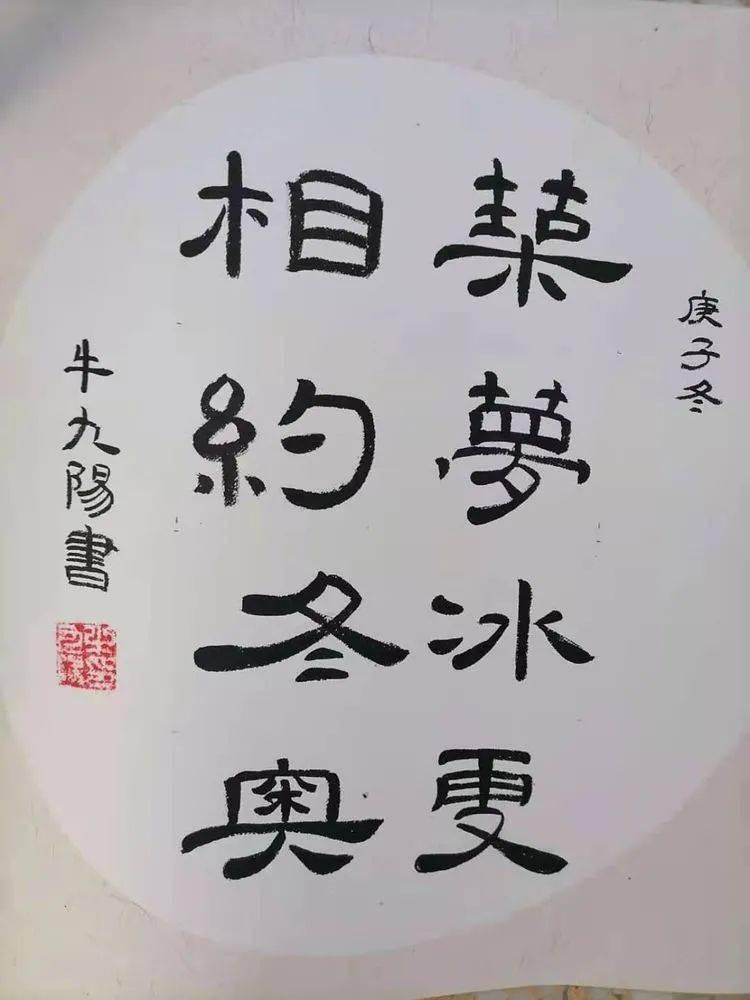 庚子冬
築夢冰雪
相約冬奥
牛九陽書